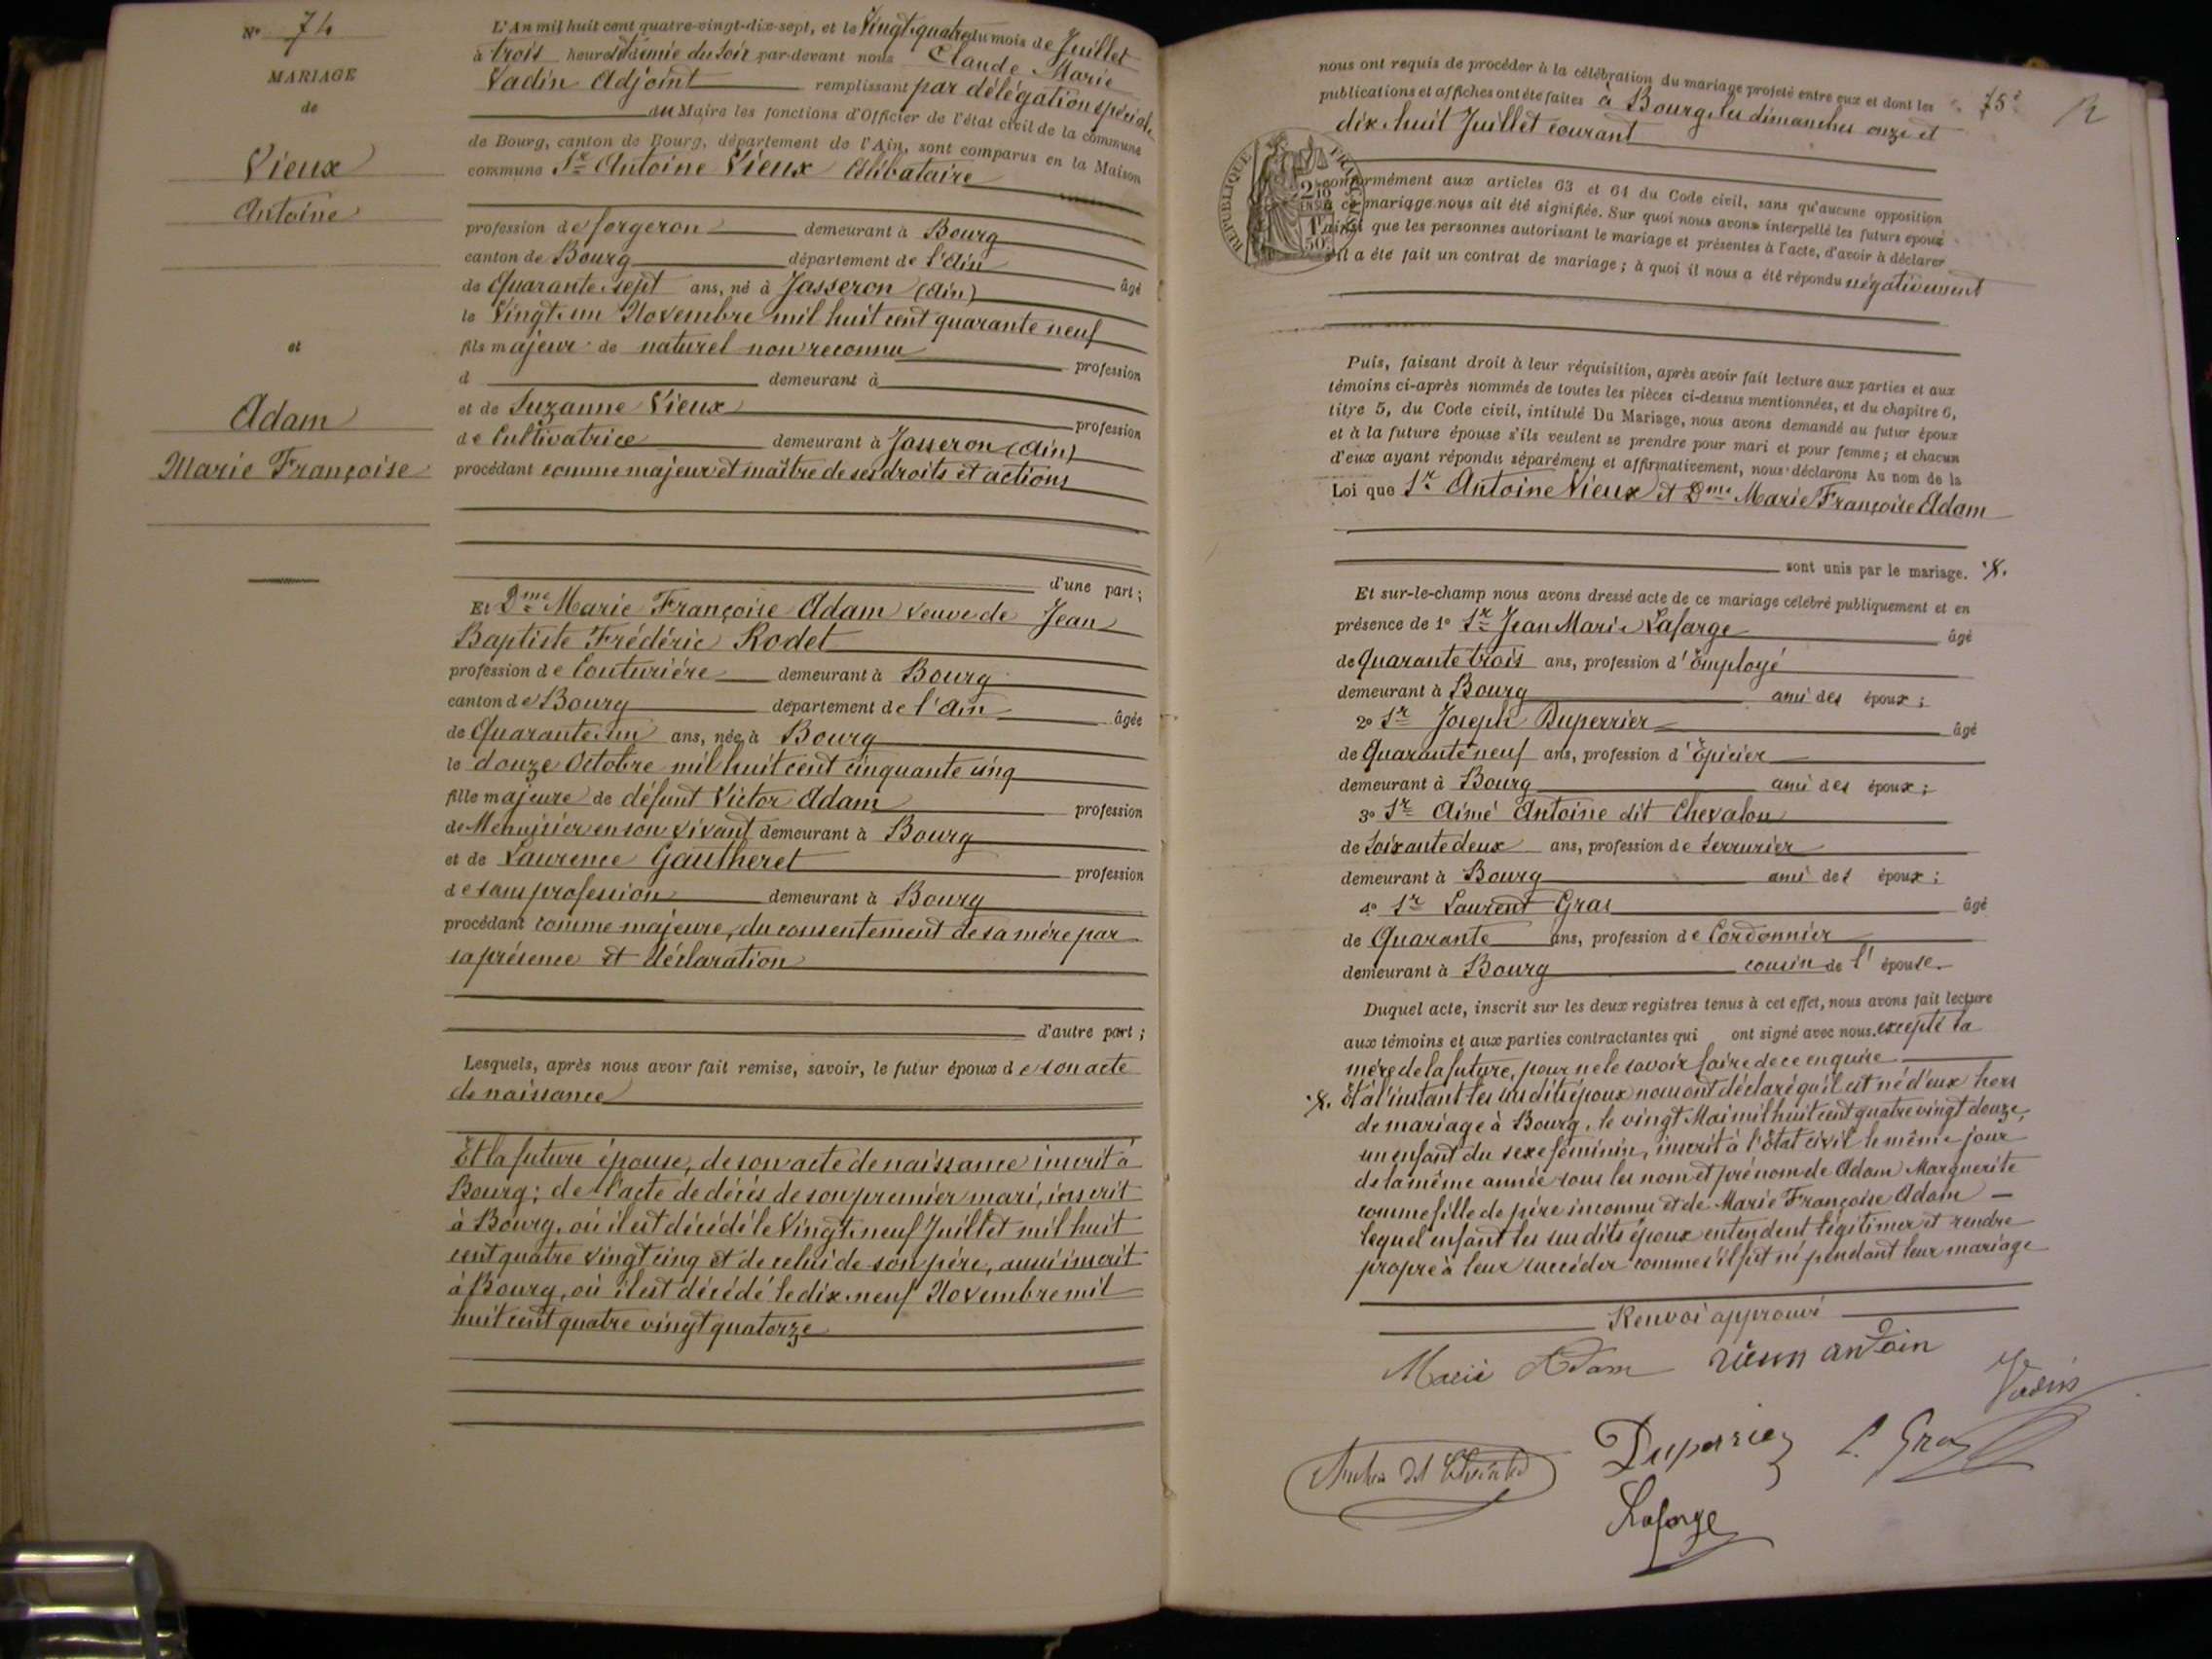 N° 74
MARIAGE
de
Vieux
Antoine
et
Adam
Marie Françoise
L'An mil huit cent quatre-vingt-dix-sept, et le Vingt-quatre du mois de Juillet
à trois heures et demie du Soir par-devant nous Claude Marie
Vadin Adjoint remplissant par délégation spéciale
du Maire les fonctions d'Officier de l'état civil de la commune
de Bourg, canton de Bourg, département de l'Ain, sont comparus en la Maison
commune Sr Antoine Vieux Célibataire
profession de forgeron demeurant à Bourg
canton de Bourg département de l'Ain âgé
de Quarante-sept ans, né à Jasseron (Ain)
le Vingt-un Novembre mil huit cent quarante neuf
fils majeur de naturel non reconnu profession
d demeurant à
et de Suzanne Vieux profession
de Cultivatrice demeurant à Jasseron (Ain)
procédant comme majeur et maître de ses droits et actions
d'une part;
Et Dme Marie Françoise Adam veuve de Jean
Baptiste Frédéric Rodet
profession de Couturière demeurant à Bourg
canton de Bourg département de l'Ain âgée
de Quarante-un ans, née à Bourg
le douze Octobre mil huit cent cinquante cinq
fille majeure de défunt Victor Adam profession
de Menuisier en son vivant demeurant à Bourg
et de Laurence Gautheret profession
de sans profession demeurant à Bourg
procédant comme majeure, du consentement de sa mère par
sa présence et déclaration
d'autre part;
Lesquels, après nous avoir fait remise, savoir, le futur époux de son acte
de naissance
Et la future épouse, de son acte de naissance inscrit à
Bourg; de l'acte de décès de son premier mari, inscrit
à Bourg, où il est décédé le Vingt-neuf Juillet mil huit
cent quatre vingt cinq et de celui de son père, aussi inscrit
à Bourg, où il est décédé le dix-neuf Novembre mil
huit cent quatre vingt quatorze
75e
nous ont requis de procéder à la célébration du mariage projeté entre eux et dont les
publications et affiches ont été faites à Bourg, les dimanches onze et
dix-huit Juillet courant
REPUBLIQUE FRANÇAISE
conformément aux articles 63 et 64 du Code civil, sans qu'aucune opposition
à ce mariage nous ait été signifiée. Sur quoi nous avons interpellé les futurs époux
ainsi que les personnes autorisant le mariage et présentes à l'acte, d'avoir à déclarer
s'il a été fait un contrat de mariage; à quoi il nous a été répondu négativement
Puis, faisant droit à leur réquisition, après avoir fait lecture aux parties et aux
témoins ci-après nommés de toutes les pièces ci-dessus mentionnées, et du chapitre 6,
titre 5, du Code civil, intitulé Du Mariage, nous avons demandé au futur époux
et à la future épouse s'ils veulent se prendre pour mari et pour femme; et chacun
d'eux ayant répondu séparément et affirmativement, nous déclarons Au nom de la
Loi que Sr Antoine Vieux et Dme Marie Françoise Adam
sont unis par le mariage.
Et sur-le-champ nous avons dressé acte de ce mariage célébré publiquement et en
présence de 1° Sr Jean Marie Lafarge âgé
de quarante trois ans, profession d'Employé
demeurant à Bourg ami des époux;
2° Sr Joseph Duperrier âgé
de Quarante neuf ans, profession d'Epicier
demeurant à Bourg ami des époux;
3° Sr Aimé Antoine dit Chevalon
de Soixante deux ans, profession de Serrurier
demeurant à Bourg ami des époux;
4° Sr Laurent Gras âgé
de Quarante ans, profession de Cordonnier
demeurant à Bourg cousin de l'épouse.
Duquel acte, inscrit sur les deux registres tenus à cet effet, nous avons fait lecture
aux témoins et aux parties contractantes qui ont signé avec nous excepté la
mère de la future, pour ne le savoir faire de ce enquise
Et à l'instant les susdits époux nous ont déclaré qu'il est né d'eux hors
de mariage à Bourg, le vingt Mai mil huit cent quatre vingt douze,
un enfant du sexe féminin, inscrit à l'Etat civil le même jour
de la même année sous les nom et prénom de Adam Marguerite
comme fille de père inconnu et de Marie Françoise Adam
lequel enfant les susdits époux entendent légitimer et rendre
propre à leur succéder comme s'il fût né pendant leur mariage
Renvoi approuvé
Marie Adam vieux antoin
Vadin
Duperrier L. Gras
Lafarge